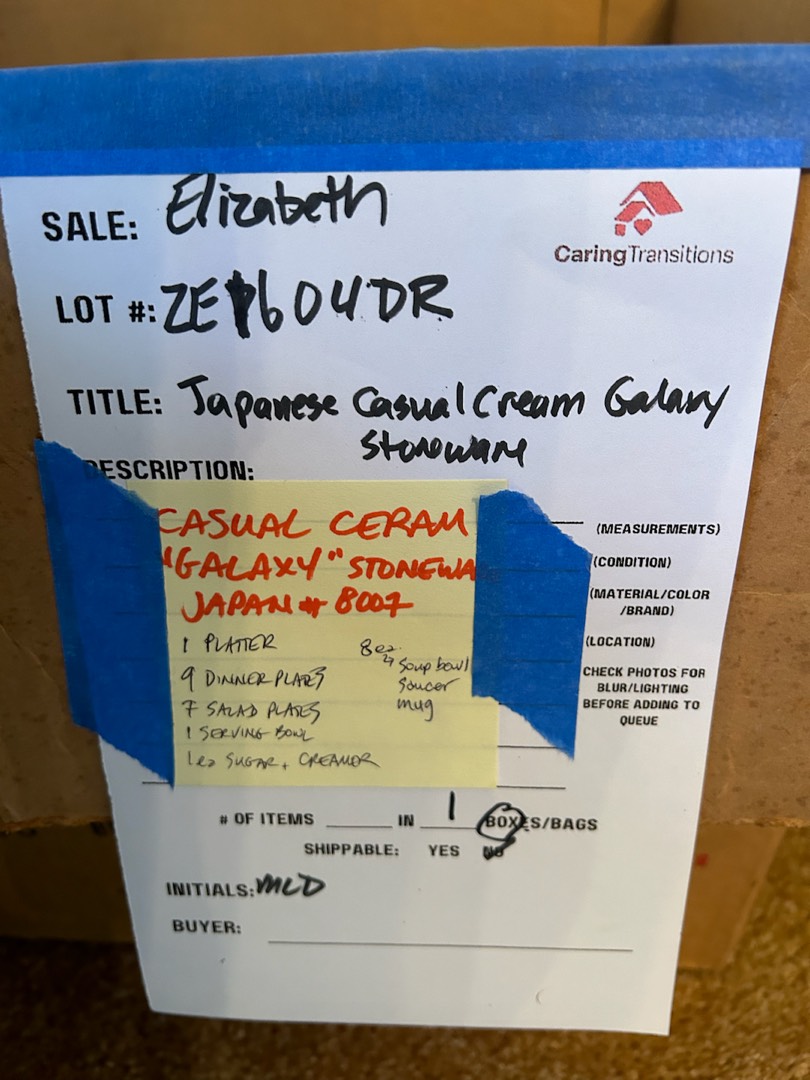 SALE: Elizabeth
CaringTransitions
LOT #: ZE1604DR
TITLE: Japanese Casual Cream Galaxy
Stoneware
DESCRIPTION:
CASUAL CERAM
"GALAXY" STONEWA
JAPAN # 8007
1 PLATTER
9 DINNER PLATES
7 SALAD PLATES
1 SERVING BOWL
1 ea SUGAR + CREAMOR
8 ea
Soup bowl
saucer
mug
(MEASUREMENTS)
(CONDITION)
(MATERIAL/COLOR
/BRAND)
(LOCATION)
CHECK PHOTOS FOR
BLUR/LIGHTING
BEFORE ADDING TO
QUEUE
# OF ITEMS IN 1 BOXES/BAGS
SHIPPABLE: YES NO
INITIALS: MLD
BUYER: